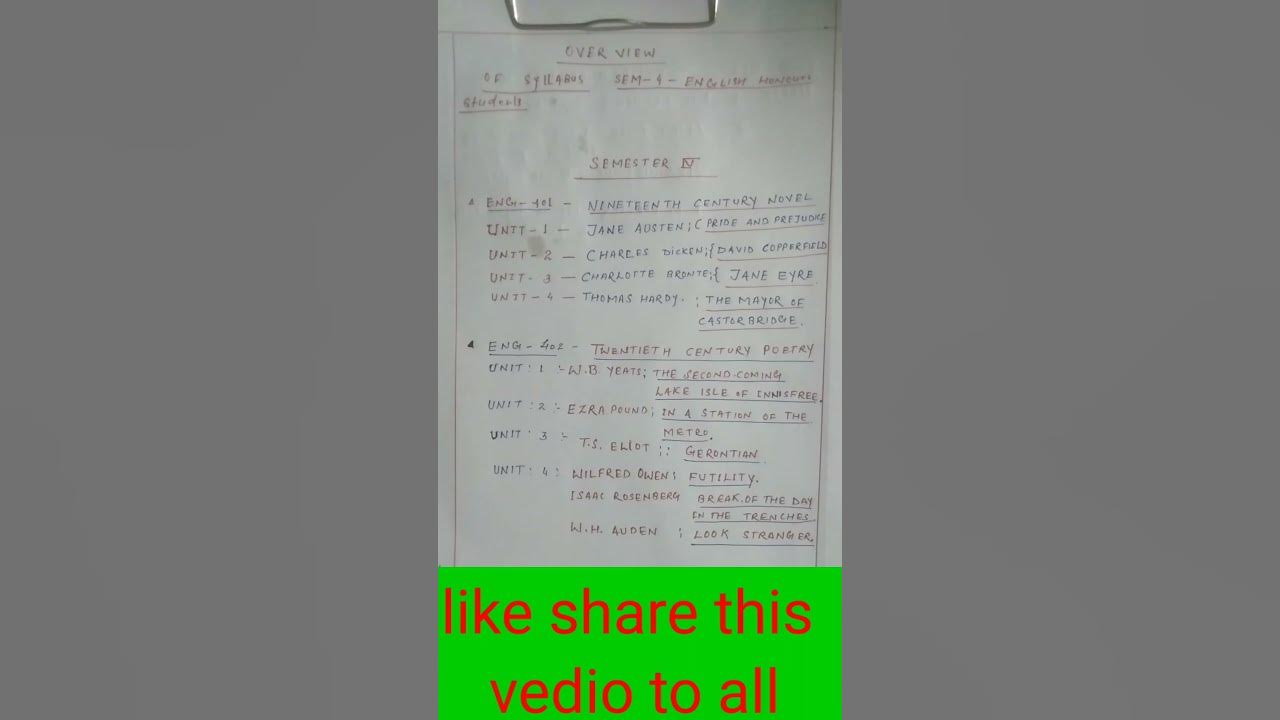 OVER VIEW
OF SYLLABUS SEM-4 - ENGLISH HONOURS
Students
SEMESTER IV
ENG-401 - NINETEENTH CENTURY NOVEL
UNIT-1 - JANE AUSTEN; ( PRIDE AND PREJUDICE
UNIT-2 - CHARLES DICKEN; { DAVID COPPERFIELD
UNIT-3 - CHARLOTTE BRONTE; { JANE EYRE
UNIT-4 - THOMAS HARDY. ; THE MAYOR OF
CASTORBRIDGE.
ENG-402 - TWENTIETH CENTURY POETRY
UNIT: 1 :- W.B YEATS; THE SECOND-COMING
LAKE ISLE OF INNISFREE.
UNIT: 2 :- EZRA POUND; IN A STATION OF THE
METRO.
UNIT: 3 :- T.S. ELIOT ;: GERONTIAN
UNIT: 4: WILFRED OWEN; FUTILITY.
ISAAC ROSENBERG BREAK.OF THE DAY
IN THE TRENCHES.
W.H. AUDEN ; LOOK STRANGER.
like share this
vedio to all